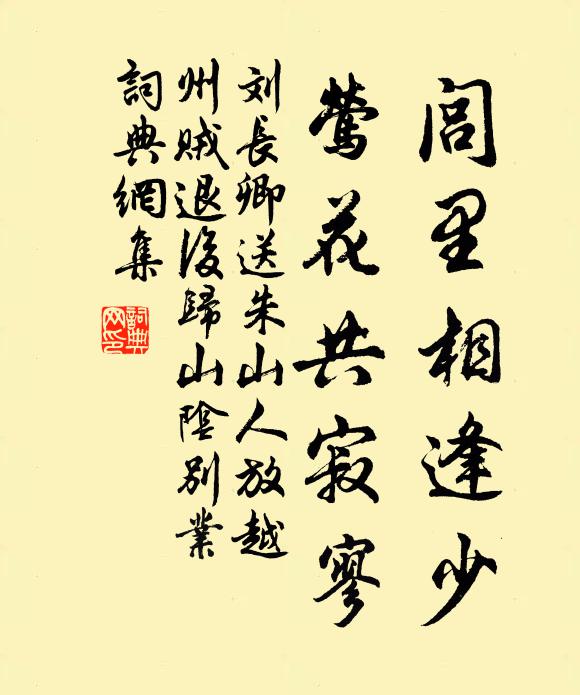 閭里相逢少
鶯花共寂寥
刘長卿送朱山人放越
州賊退後歸山陰別業
詞典網集
詞典网印